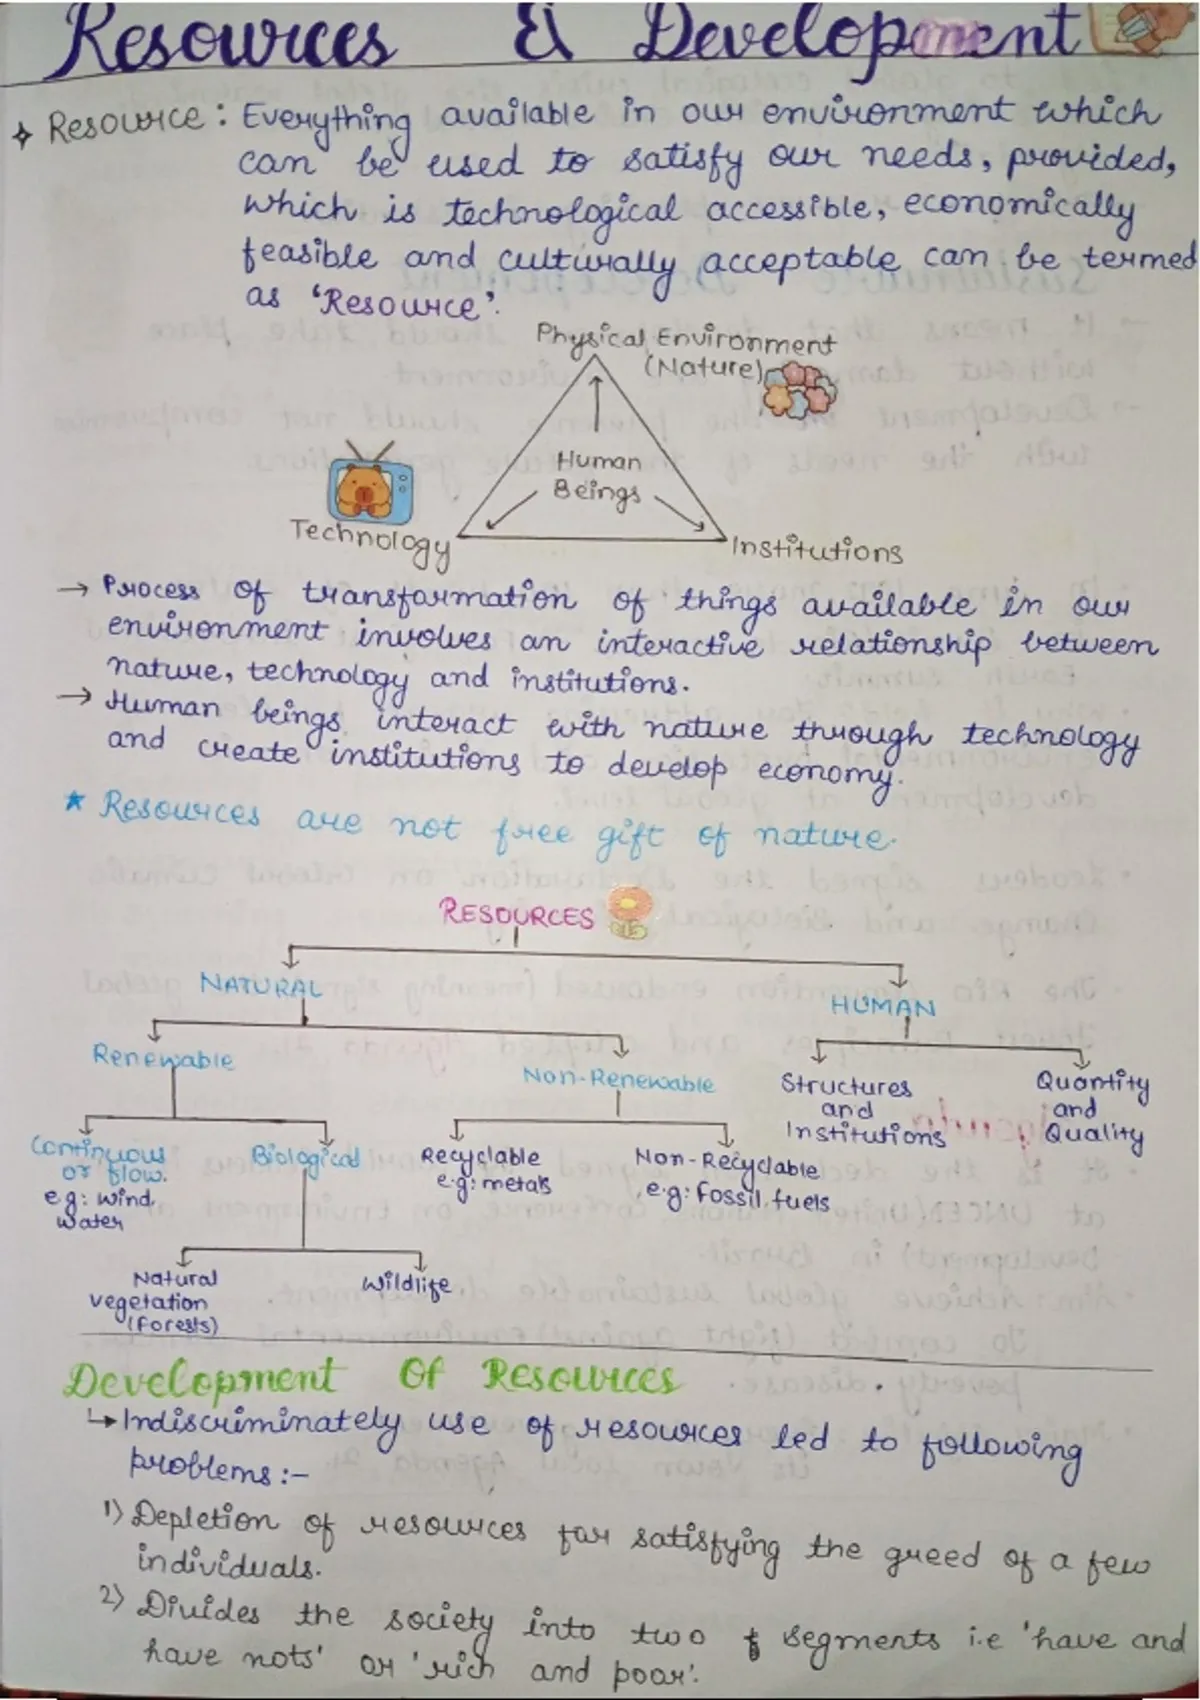 Resources & Development
Resource: Everything available in our environment which
can be used to satisfy our needs, provided,
which is technological accessible, economically
feasible and culturally acceptable can be termed
as 'Resource'.
Physical Environment
(Nature)
Human
Beings
Technology
Institutions
→ Process of transformation of things available in our
environment involves an interactive relationship between
nature, technology and institutions.
→ Human beings interact with nature through technology
and create institutions to develop economy.
★ Resources are not free gift of nature.
RESOURCES
NATURAL
HUMAN
Renewable
Non-Renewable
Structures
and
Institutions
Quantity
and
Quality
Continuous
or flow.
e.g: wind,
water
Biological
Recyclable
e.g: metals
Non-Recyclable
e.g: fossil fuels
Natural
vegetation
(forests)
Wildlife
Development Of Resources
↳ Indiscriminately use of resources led to following
problems :-
1) Depletion of resources for satisfying the greed of a few
individuals.
2) Divides the society into two segments i.e 'have and
have nots' or 'rich and poor'.